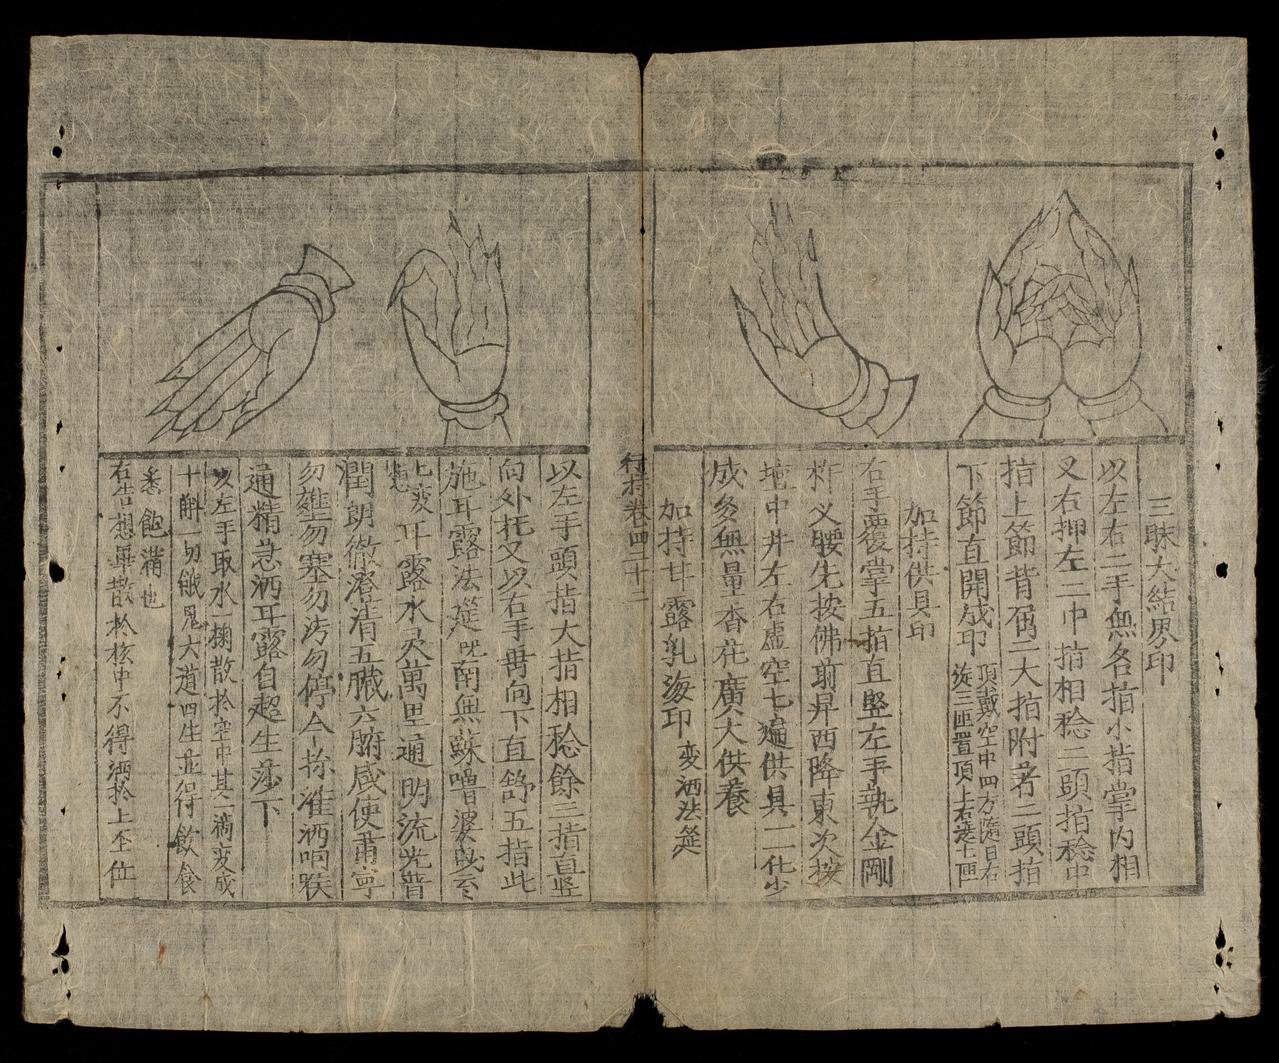 三昧大結界印
以左右二手無名指小指掌內相
叉右押左二巾指相稔二頭指稔中
指上節背屈二大指附著二頭指
下節直開成印 頂戴空中四方隨日右
旋三匝置頂上右遶七匝
加持供具印
右手覆掌五指直竪左手執金剛
杵叉腰先按佛前昇西降東次按
壇中井左右虛空七遍供具一一化少
成多無量香花廣大供養
加持甘露乳海印 变洒法筵
行持卷四 二十二
以左手頭指大指相稔餘三指直竖
向外托又以右手 向下直舒五指此
施甘露法筵 呪南無蘇嚕婆 云云
上变
想 甘露水灵萬里通明流光普
潤朗徹澄清五臟六腑咸使肅寧
勿 勿塞勿 勿停今 准洒咽喉
通精急洒甘露自超生莎下
以左手取水掬散於空中其二滴变成
十斛一切餓鬼六道四生並得飲食
悉飽滿也
右告想畢散於 中不得洒於上 位